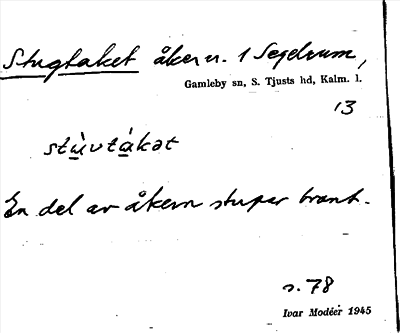 Stugtaket åker u. 1 Segelrum,
Gamleby sn, S. Tjusts hd, Kalm. l.
13
stù̱vtá̱kət
En del av åkern stupar brant.
s. 78
Ivar Modéer 1945